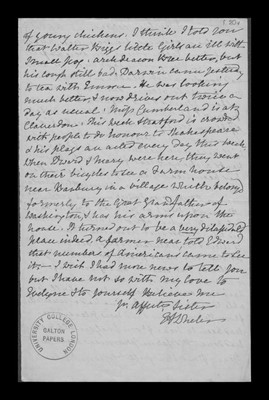 180v
of young chickens. I think I told you
that Walter Briggs little Girls are ill with
Small pox. archdeacon Wheler better, but
his cough still bad. Darwin came yesterday
to tea with Emma. He was looking
much better & now drives out twice a
day as usual. Miss Cumberland is at
Claverdon. This week Stratford is crowded
with people to do honour to Shakespeare
& his plays are acted every day this week.
When Edward & Mary were here, they went
on their bicycles to see a Farm house
near Banbury in a village which belonged
formerly to the Great Grandfather of
Washington, & has his arms upon the
house. It turned out to be a very dilapidated
place indeed. a farmer near told Edward
that numbers of Americans came to see
it. I wish I had more news to tell you
but I have not so with my love to
Evelyne & to yourself Believe me
yr. affecte. Sister
UNIVERSITY COLLEGE LONDON
GALTON
PAPERS